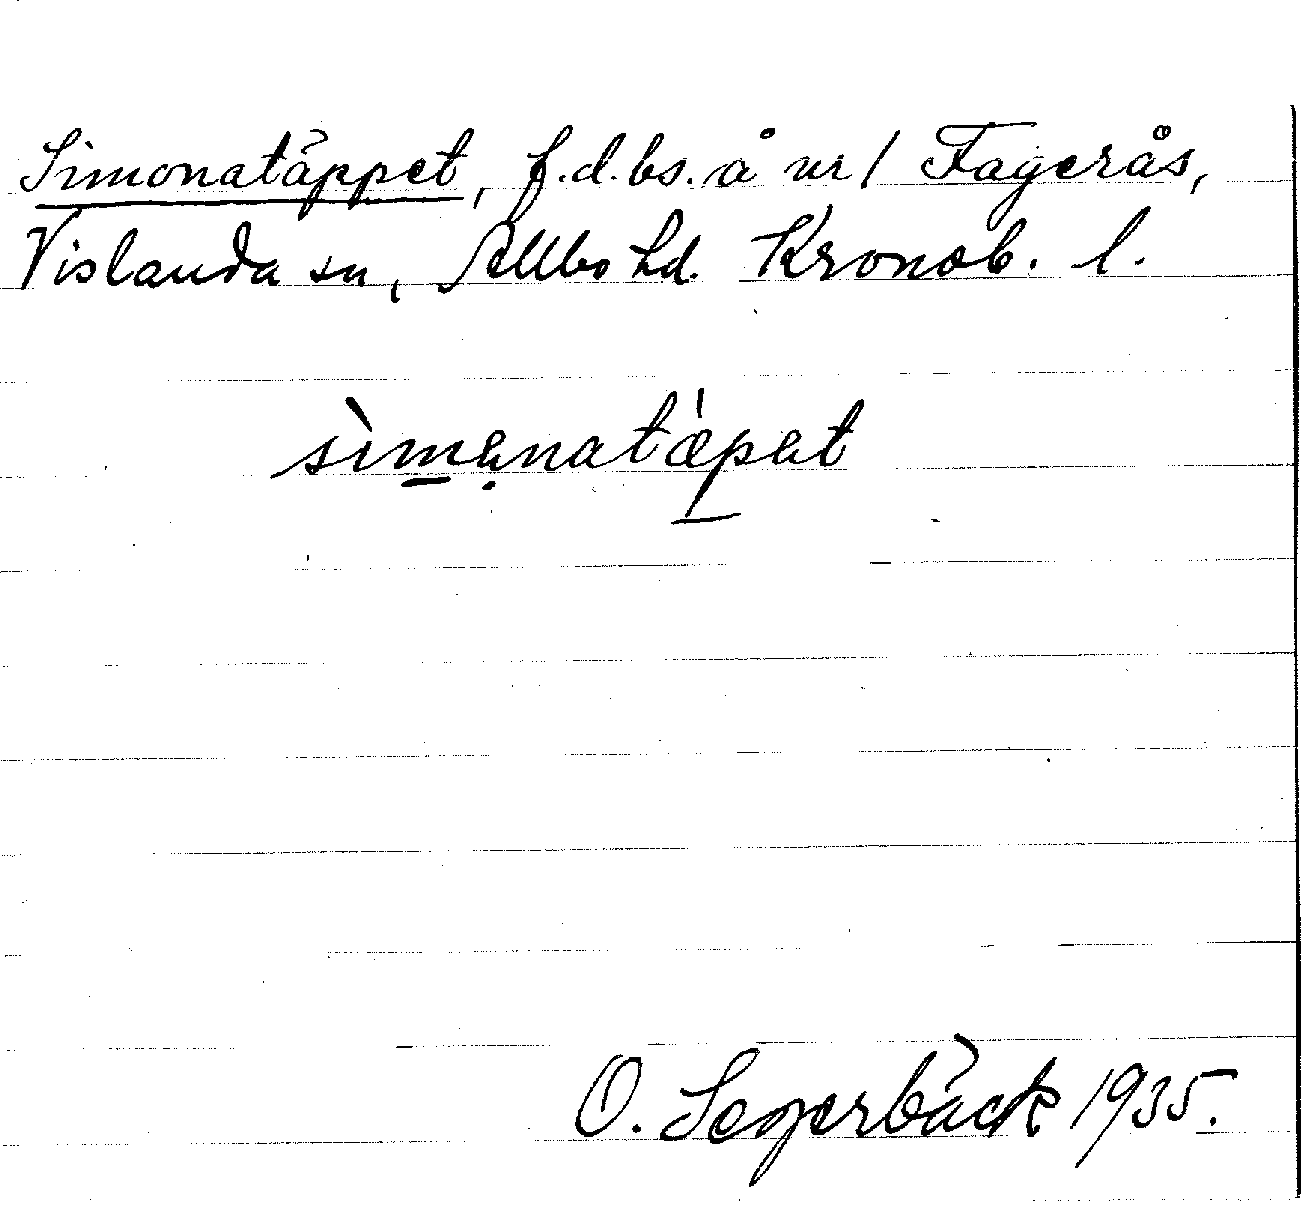 Simonatäppet, f.d. bs. å nr 1 Fagerås,
Vislanda sn, Allbo hd. Kronob. l.
sìmənatǽpət
O. Segerbäck 1935.